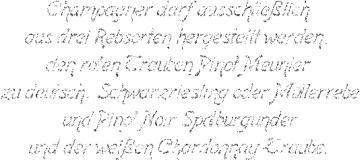 Champagner darf ausschließlich
aus drei Rebsorten hergestellt werden,
den roten Trauben Pinot Meunier
zu deutsch: Schwarzriesling oder Müllerrebe
und Pinot Noir Spätburgunder
und der weißen Chardonnay Traube.